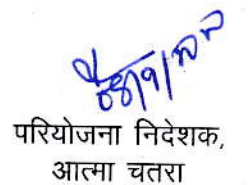 परियोजना निदेशक,
आत्मा चतरा